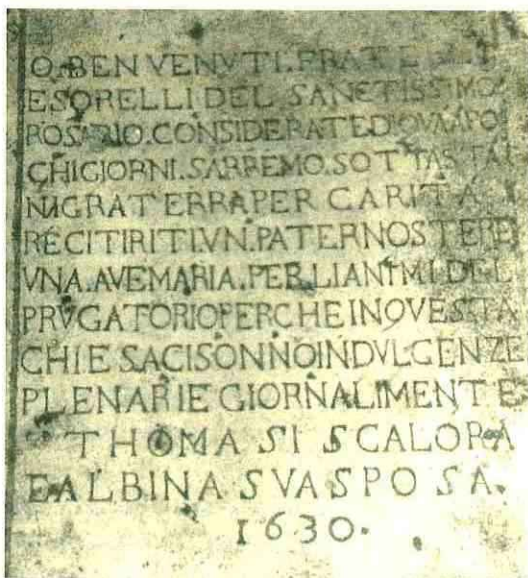 O. BEN VENVTI. FRATELLI
E SORELLI DEL SANCTISSIMO
ROSARIO. CONSIDERATE DI QVA A PO
CHI GIORNI. SARREMO. SOTTA STA
NIGRA TERRA PER CARITÀ
RECITIRITI VN. PATERNOSTER E
VNA. AVEMARIA. PER LI ANIMI DEL
PRVGATORIO PERCHE IN QVESTA
CHIESA CI SONNO INDVLGENZE
PLENARIE GIORNALIMENTE
THOMASI SCALORA
E ALBINA SVA SPOSA.
1630.